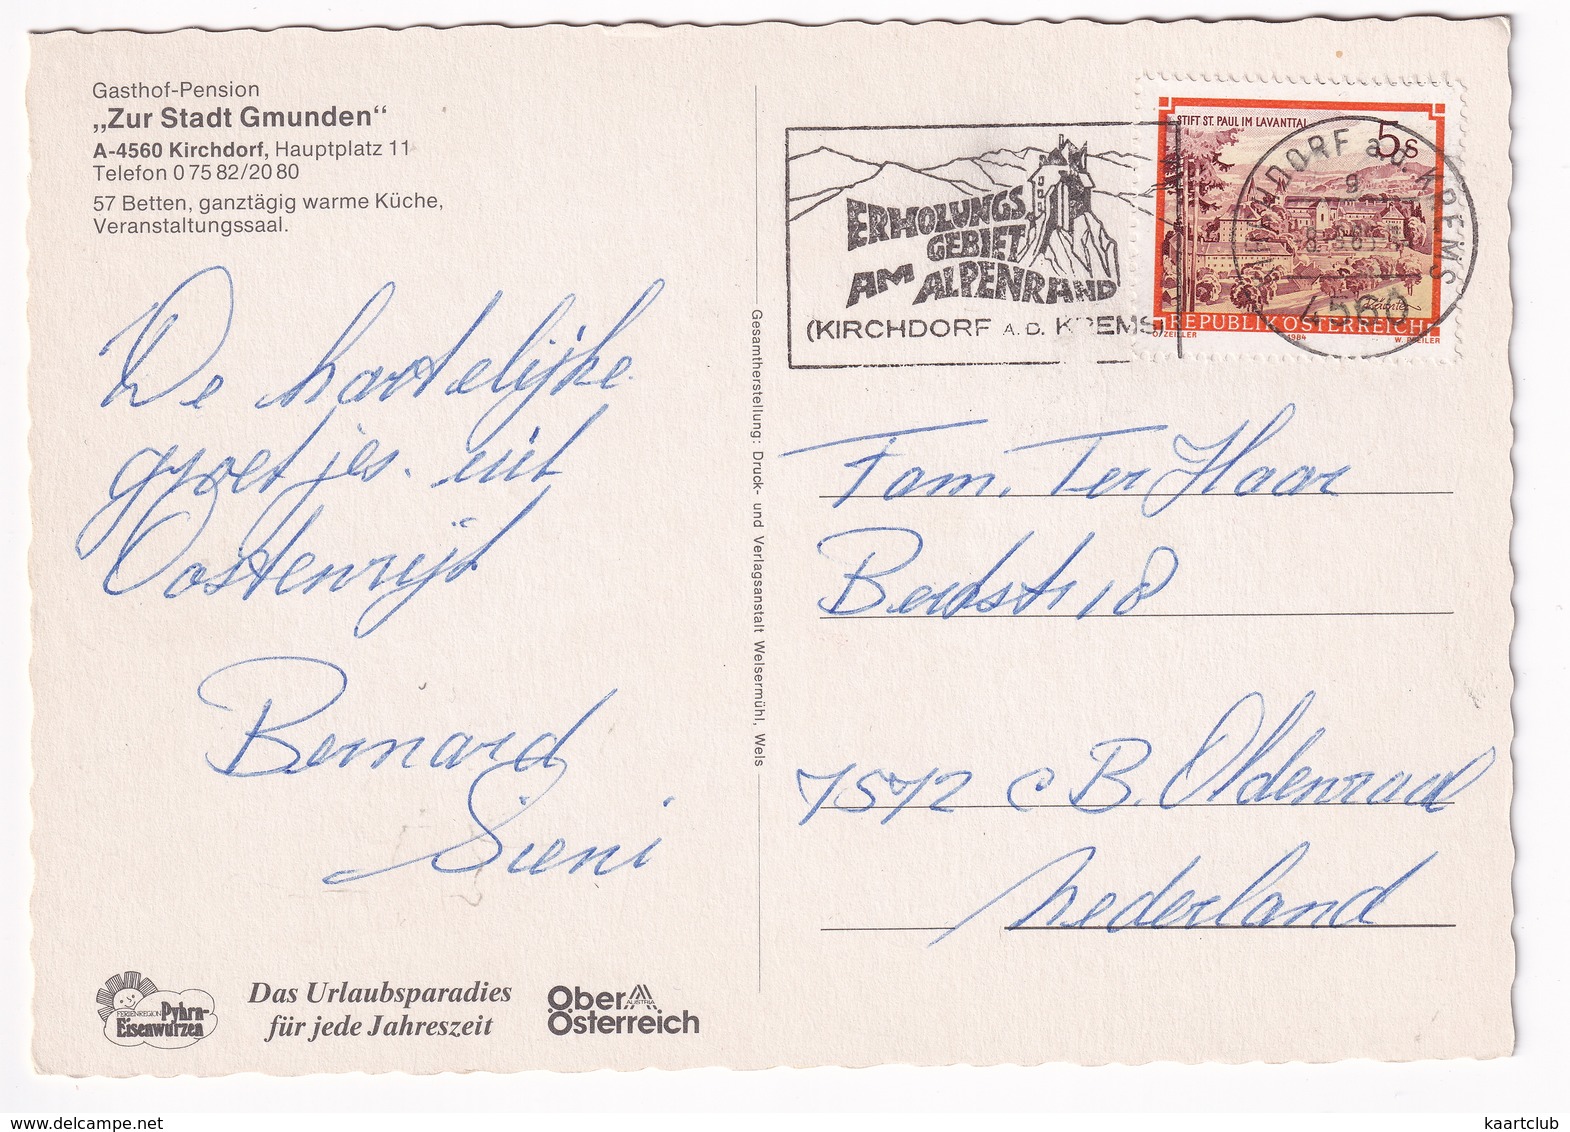 Gasthof-Pension
„Zur Stadt Gmunden"
A-4560 Kirchdorf, Hauptplatz 11
Telefon 0 75 82/20 80
57 Betten, ganztägig warme Küche,
Veranstaltungssaal.
De hartelijke
groetjes uit
Oostenrijk
Bernard
Sieni
FERIENREGION Pyhrn-
Eisenwurzen
Das Urlaubsparadies
für jede Jahreszeit
Ober
AUSTRIA
Österreich
Gesamtherstellung: Druck- und Verlagsanstalt Welsermühl, Wels
ERHOLUNGS
GEBIET
AM ALPENRAND
(KIRCHDORF A. D. KREMS)
STIFT ST. PAUL IM LAVANTTAL
5 S
REPUBLIK ÖSTERREICH
O. ZEILLER 1984 W. PFEILER
KIRCHDORF a. d. KREMS
4560
Fam. Ter Haar
7572 C B. Oldenraad
Nederland
www.delcampe.net
kaartclub